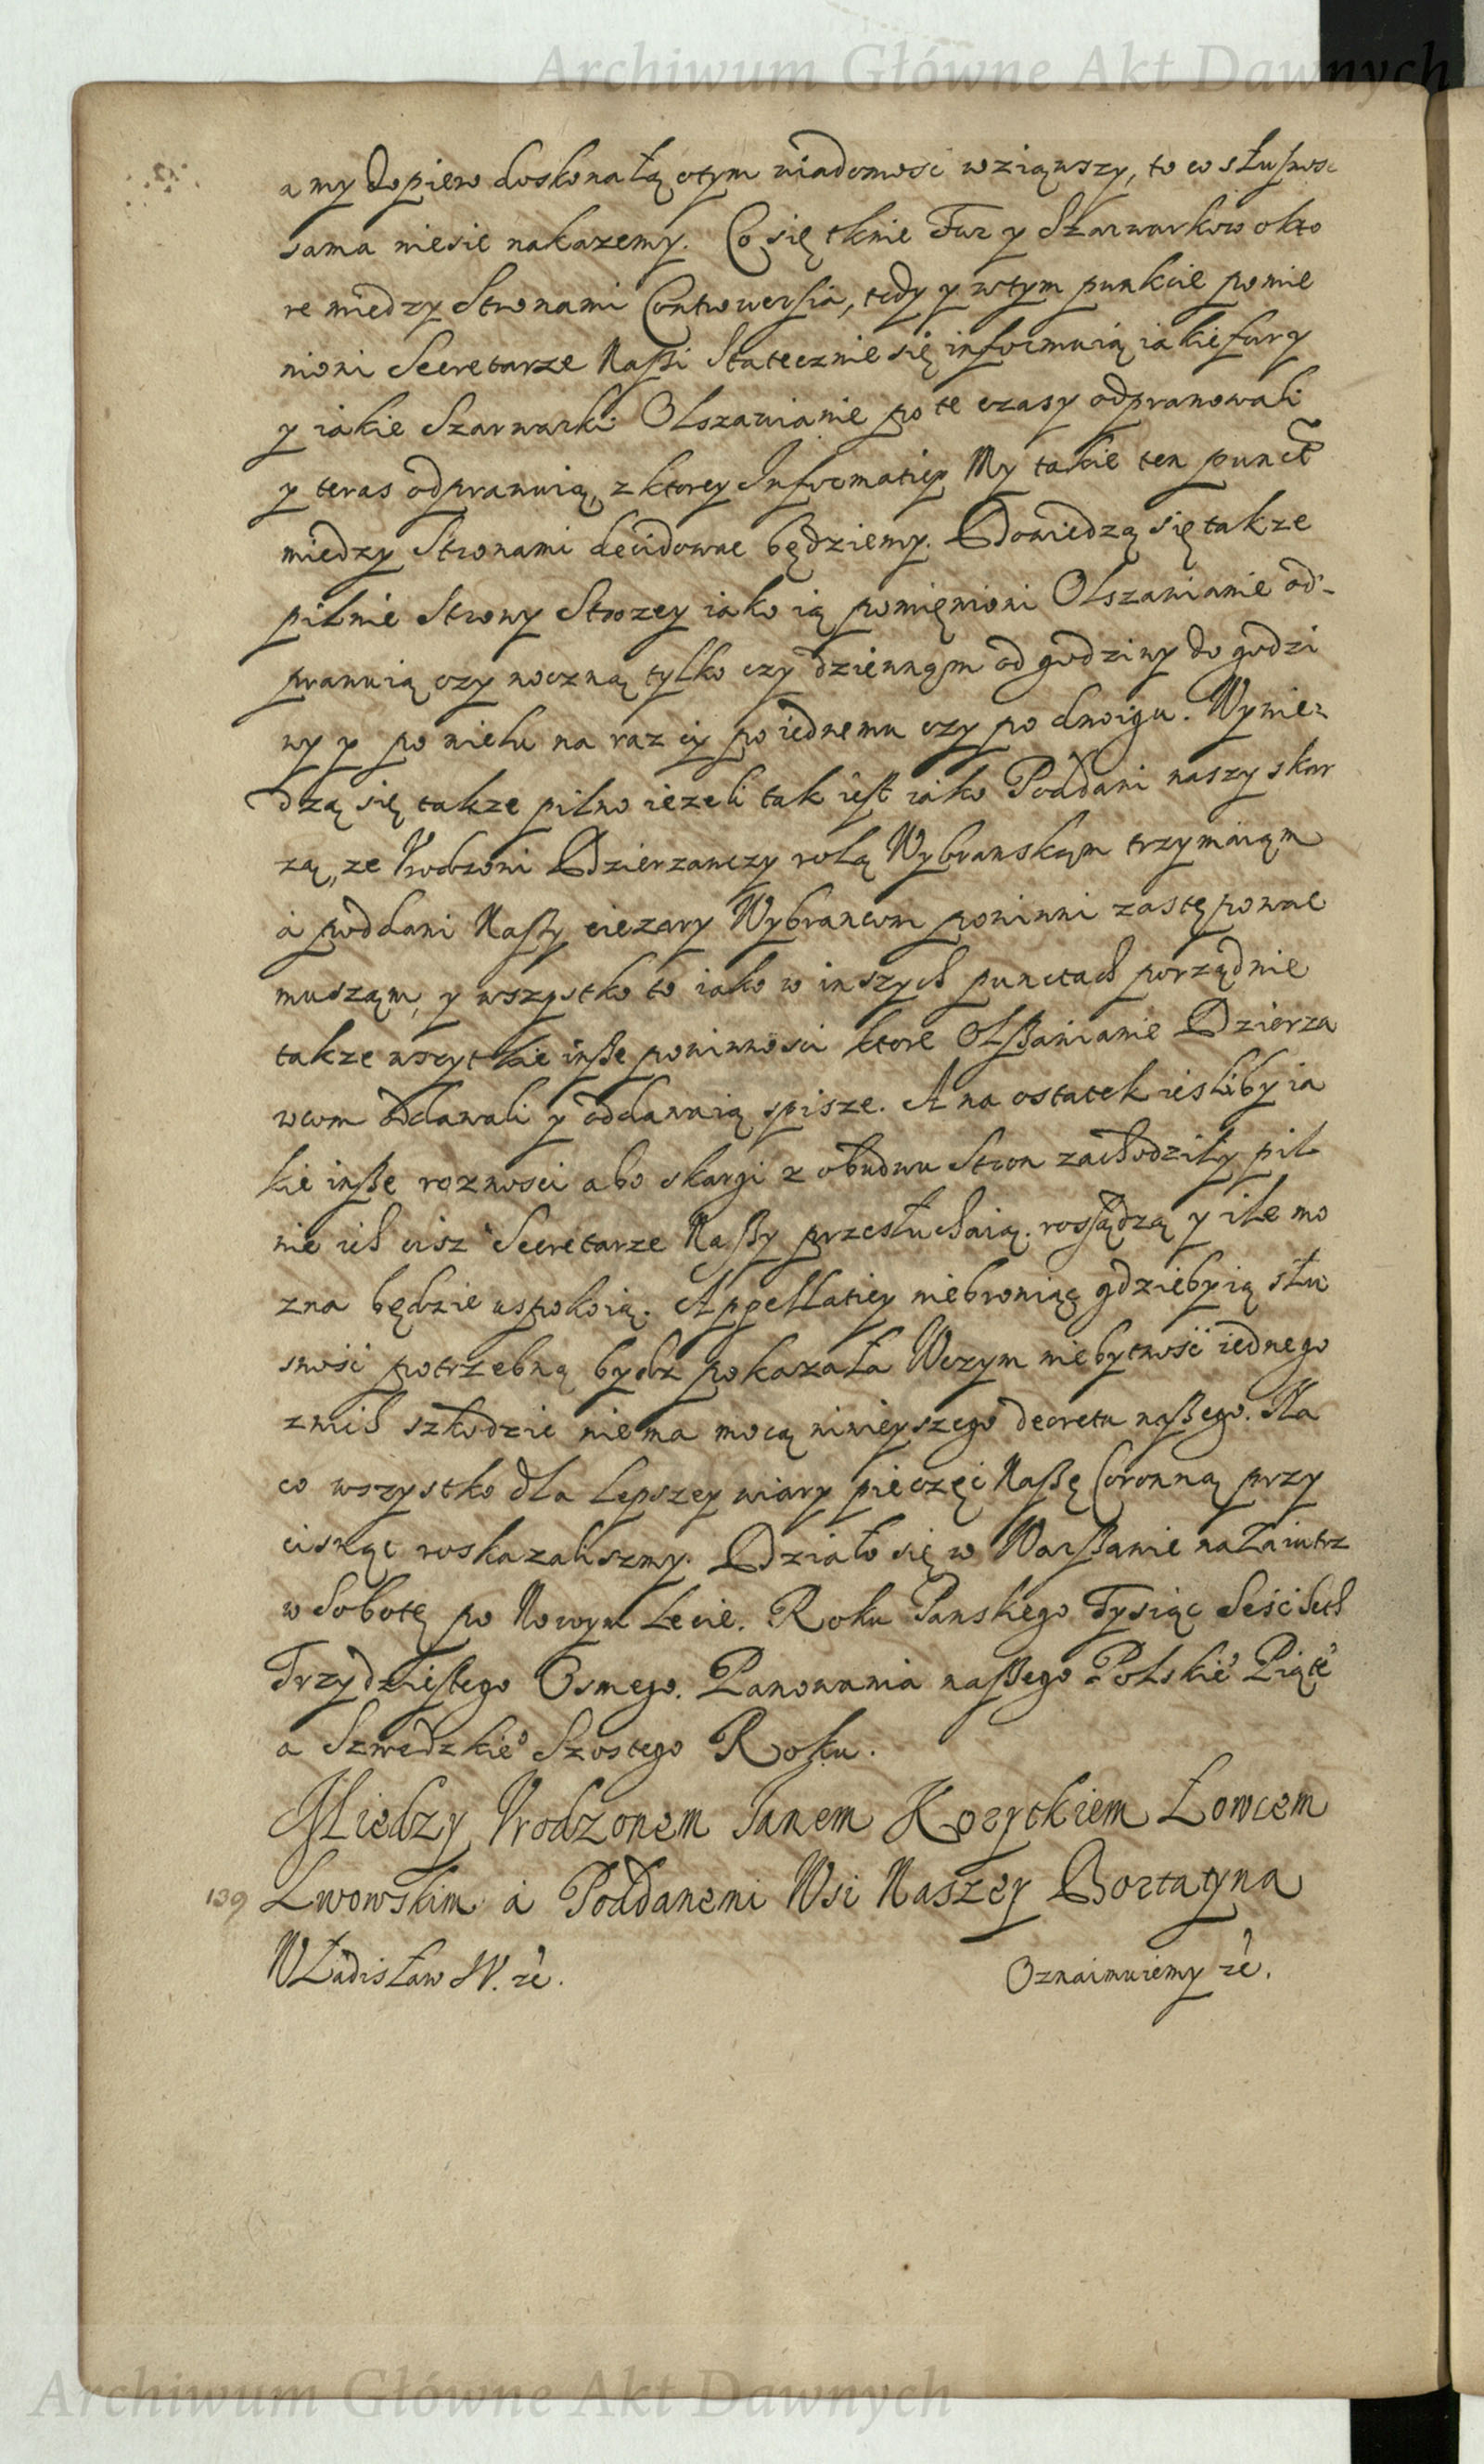 Archiwum Główne Akt Dawnych
a my dopiero doskonałą o tym wiadomość wziąwszy, to co słuszność
sama niesie nakazemy. Co się tknie Fur y Szarwarkow okto
re miedzy Stronami Controversia, tedy y wtym punkcie pomie
nioni Secretarze Naszi Statecznie się informuią iakie fury
y iakie Szarwarki Olszawianie po te czasy odprawowali
y teras odprawuią, z ktorey Informatiey My takie ten punct
miedzy Stronami decidowac będziemy. Dowiedzą się takze
pilnie Strony Strozey iako ią pomięnioni Olszawianie od-
prawuią czy noczną tylko czy dziennąm od godziny do godzi
ny y po wielu na raz cy po iednemu czy po dwoigu. Wywie-
dzą się takze pilno iezeli tak iest iako Poddani naszy skar
zą, ze Vrodzoni Dzierzawczy rolą Wybranskąm trzymaiąm
a poddani Naszy ciezary Wybrancom powinni zastępowac
musząm, y wszystko to iako w inszych punctach porządnie
takze wszytkie insze powinności ktore Olszawianie Dzierza
wcom oddawali y oddawaią spisze. A na ostatek iesliby ia
kie insze roznosci abo skargi z obudwu Stron zachodziły pil
nie ich cisz Secretarze Naszy przesłuchaią. rosządzą y ile mo
zna będzie uspokoią. Appellatiey niebroniąc gdzieby ią słu
sność potrzebną bydz pokazała Wczym niebytność iednego
znich szkodzic niema mocą ninieyszego decretu naszego. Na
co wszystko dla lepszey wiary pieczęć Naszę Coronną przy
cisnąc roskazaliszmy. Działo się w Warszawie naZaiutrz
w Sobotę po Nowym Lecie. Roku Panskego Tysiąc Seśćsech
Trzydziestego Osmego. Panowania naszego Polskie° Piąte°
a Szwedzkie° Szostego Roku.
Miedzy Vrodzonem Janem Kozyckiem Łowcem
139 Lwowskim a Poddanemi Wsi Naszey Bortatyna
Władisław IV. rc. Oznaimuiemy rc.
Archiwum Główne Akt Dawnych